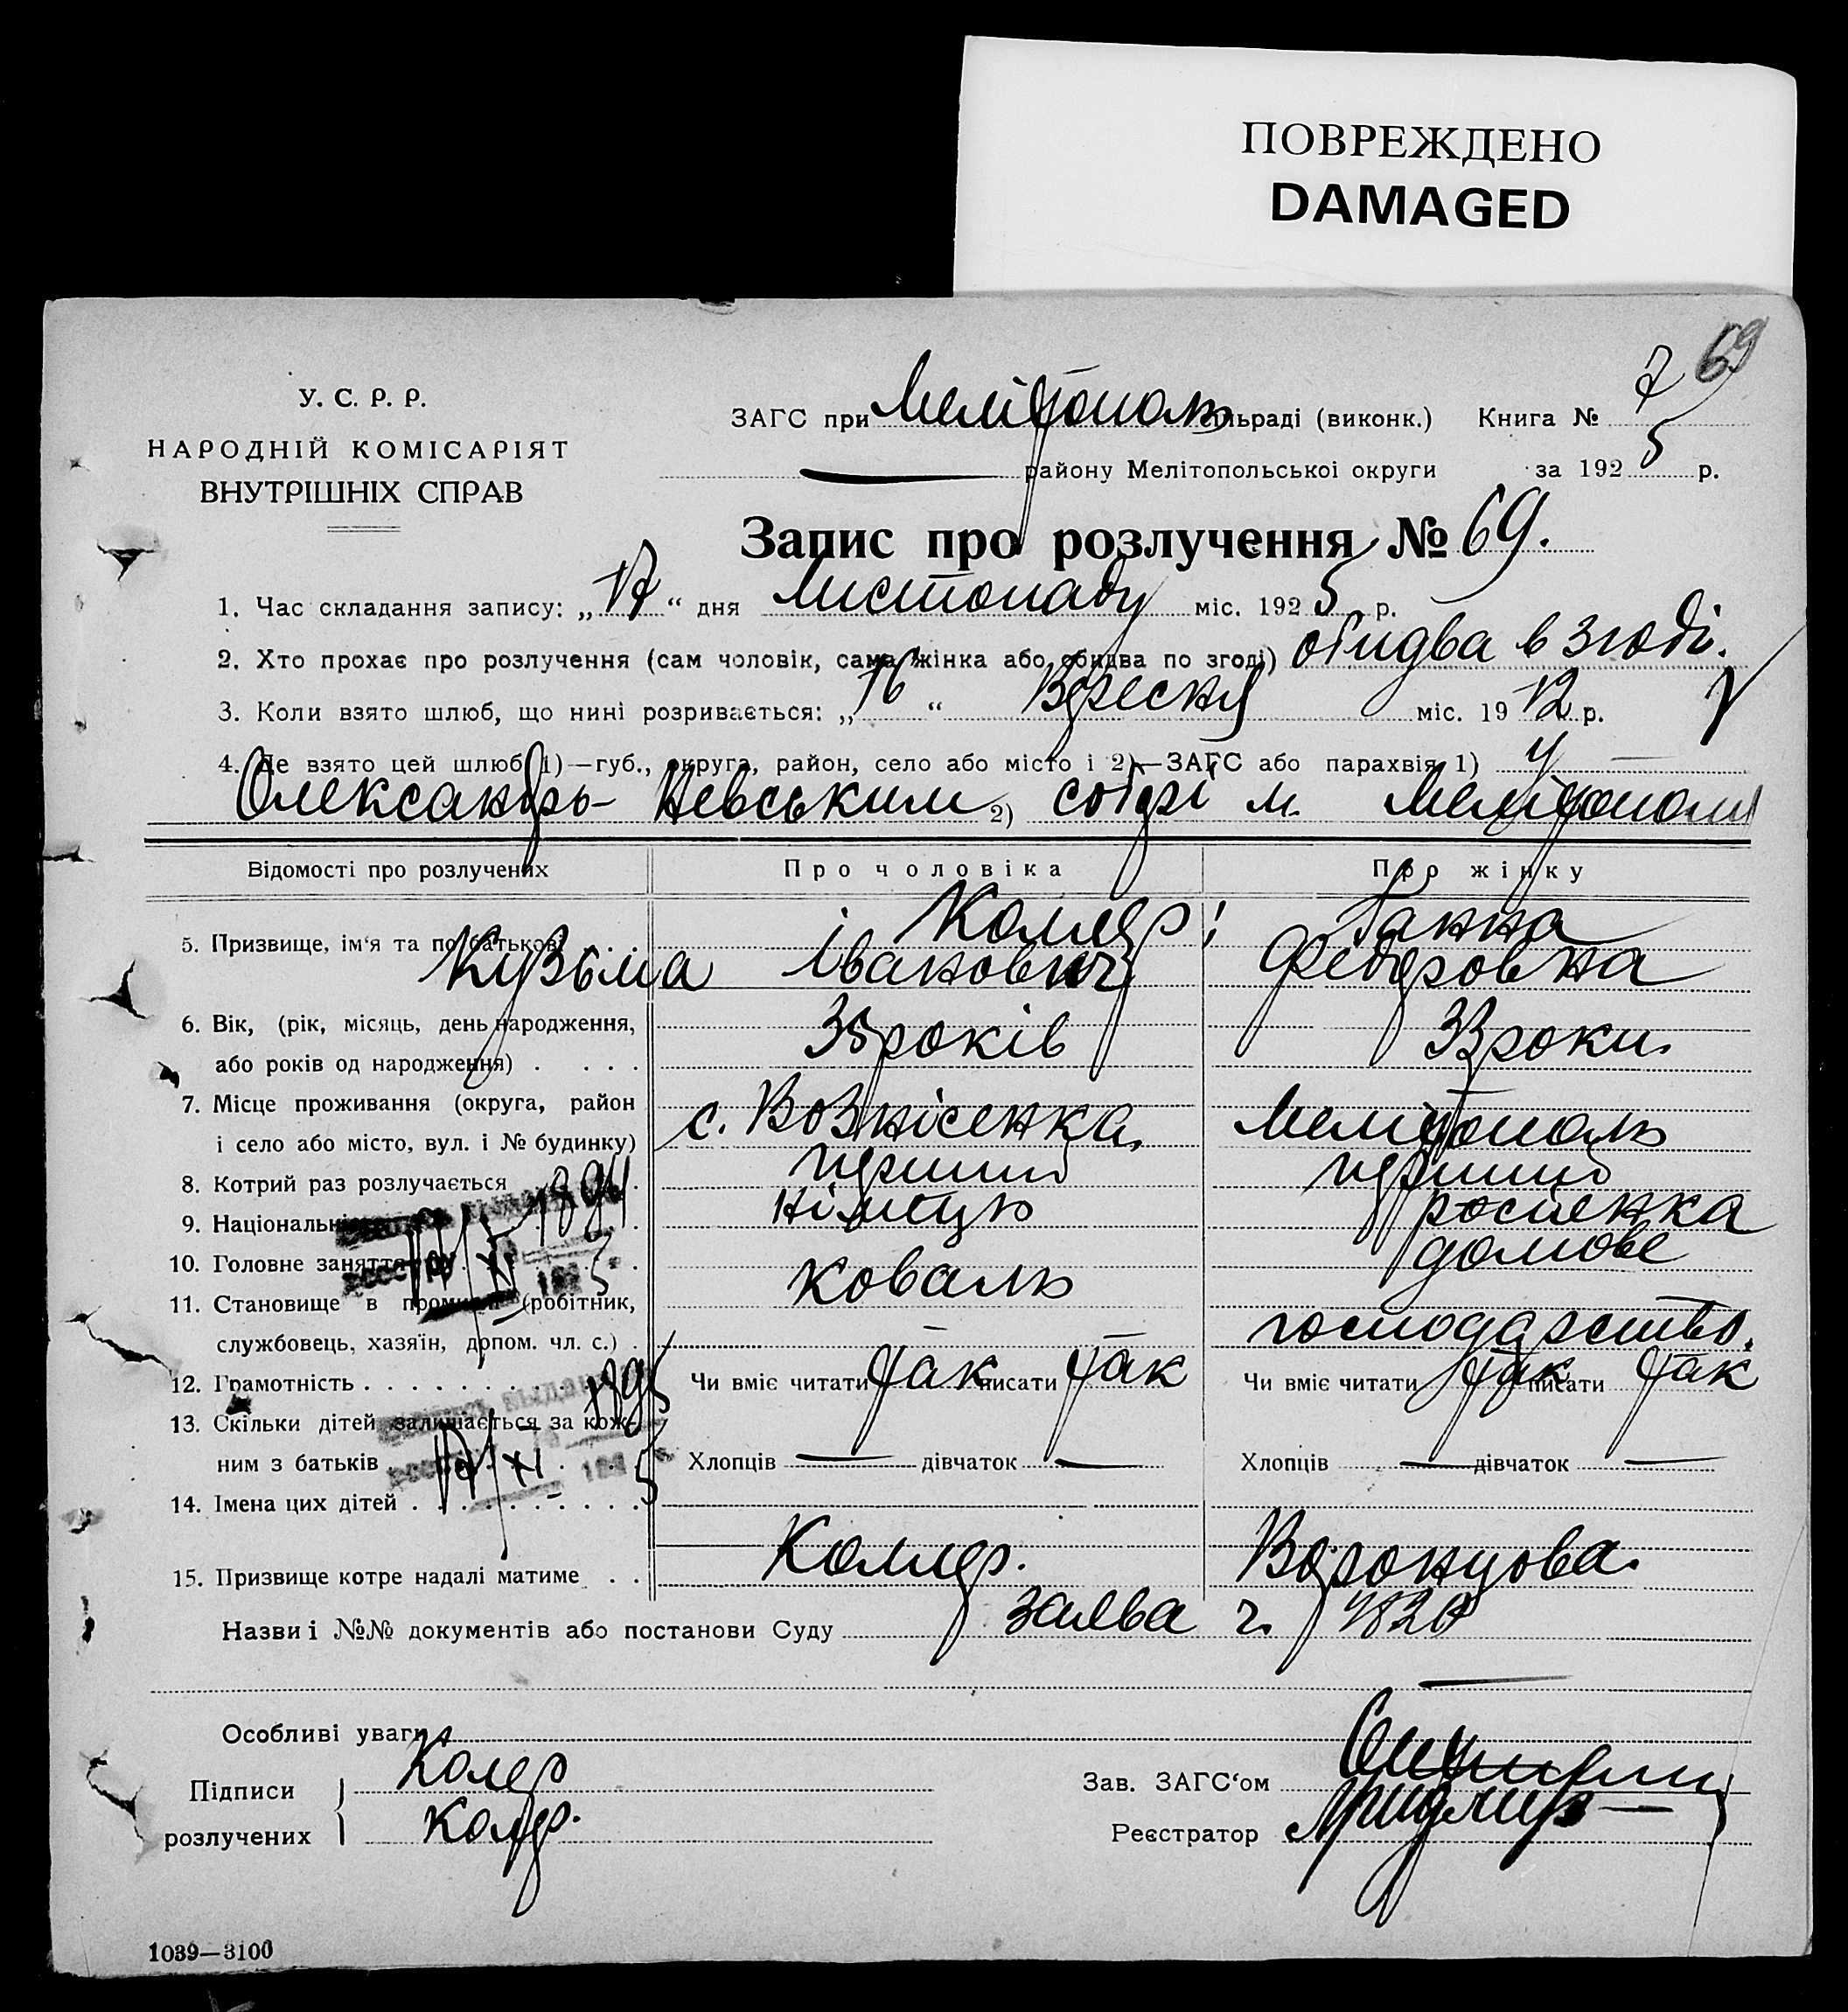 ПОВРЕЖДЕНО
DAMAGED
69
У. С. Р. Р.
НАРОДНІЙ КОМІСАРІЯТ
ВНУТРІШНІХ СПРАВ
ЗАГС при Мелітополь сільраді (виконк.) Книга № 7
— району Мелітопольської округи за 1925 р.
Запис про розлучення № 69.
1. Час складання запису: „17“ дня Листопаду міс. 1925 р.
2. Хто прохає про розлучення (сам чоловік, сама жінка або обидва по згоді) обидва в згоді.
3. Коли взято шлюб, що нині розривається: „16“ Вересня міс. 1912 р.
4. Де взято цей шлюб 1)—губ., округа, район, село або місто і 2)—ЗАГС або парахвія 1) у
Олександро-Невським 2) соборі м. Мелітополі
Відомості про розлучених Про чоловіка Про жінку
5. Призвище, ім‘я та по батькові Коллер Ганна
Кузьма Іванович Федоровна
6. Вік, (рік, місяць, день народження,
або років од народження) 35 років 33 роки.
7. Місце проживання (округа, район
і село або місто, вул. і № будинку) с. Вознісенка, Мелітополь
8. Котрий раз розлучається перший перший
9. Національність німець росиянка
10. Головне заняття коваль домове
11. Становище в промислі (робітник,
службовець, хазяїн, допом. чл. с.) господарство.
12. Грамотність Чи вміє читати так писати так Чи вміє читати так писати так
13. Скільки дітей залишається за кож-
ним з батьків Хлопців — дівчаток — Хлопців — дівчаток —
14. Імена цих дітей
15. Призвище котре надалі матиме Коллер. Воронцова.
Назви і №№ документів або постанови Суду заява ч.
Особливі уваги
Підписи Колер Зав. ЗАГС‘ом
розлучених Колер. Реєстратор
1039—3100